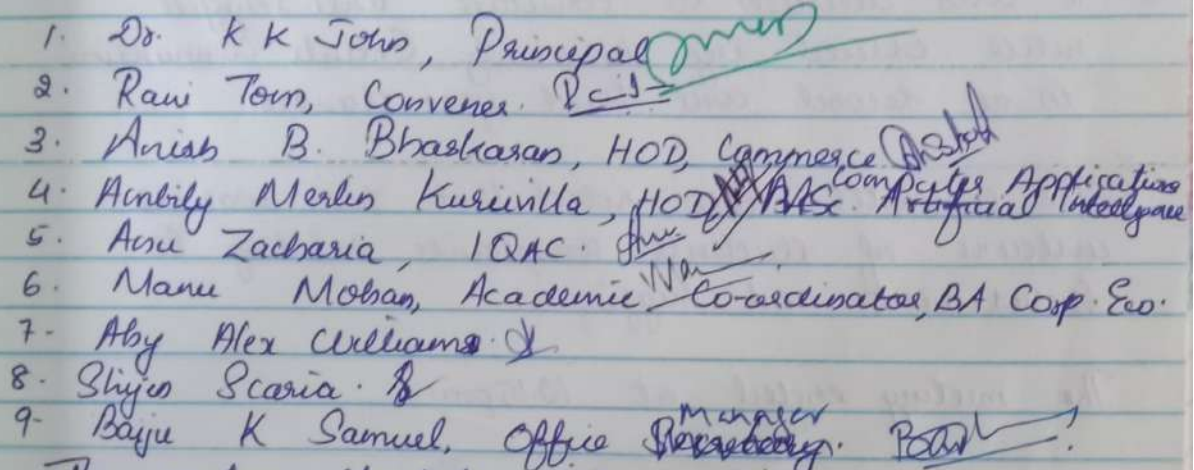 1. Dr. K K John, Principal
2. Ravi Tom, Convener.
3. Anish B. Bhaskaran, HOD, Commerce
4. Ambily Merlin Kuruvilla, HOD, Computer Applications
BSc. Artificial Intelligence
5. Anu Zacharia, IQAC.
6. Manu Mohan, Academic Co-ordinator, BA Corp. Eco.
7. Aby Alex Williams.
8. Shijin Scaria.
9. Baiju K Samuel, Office Manager